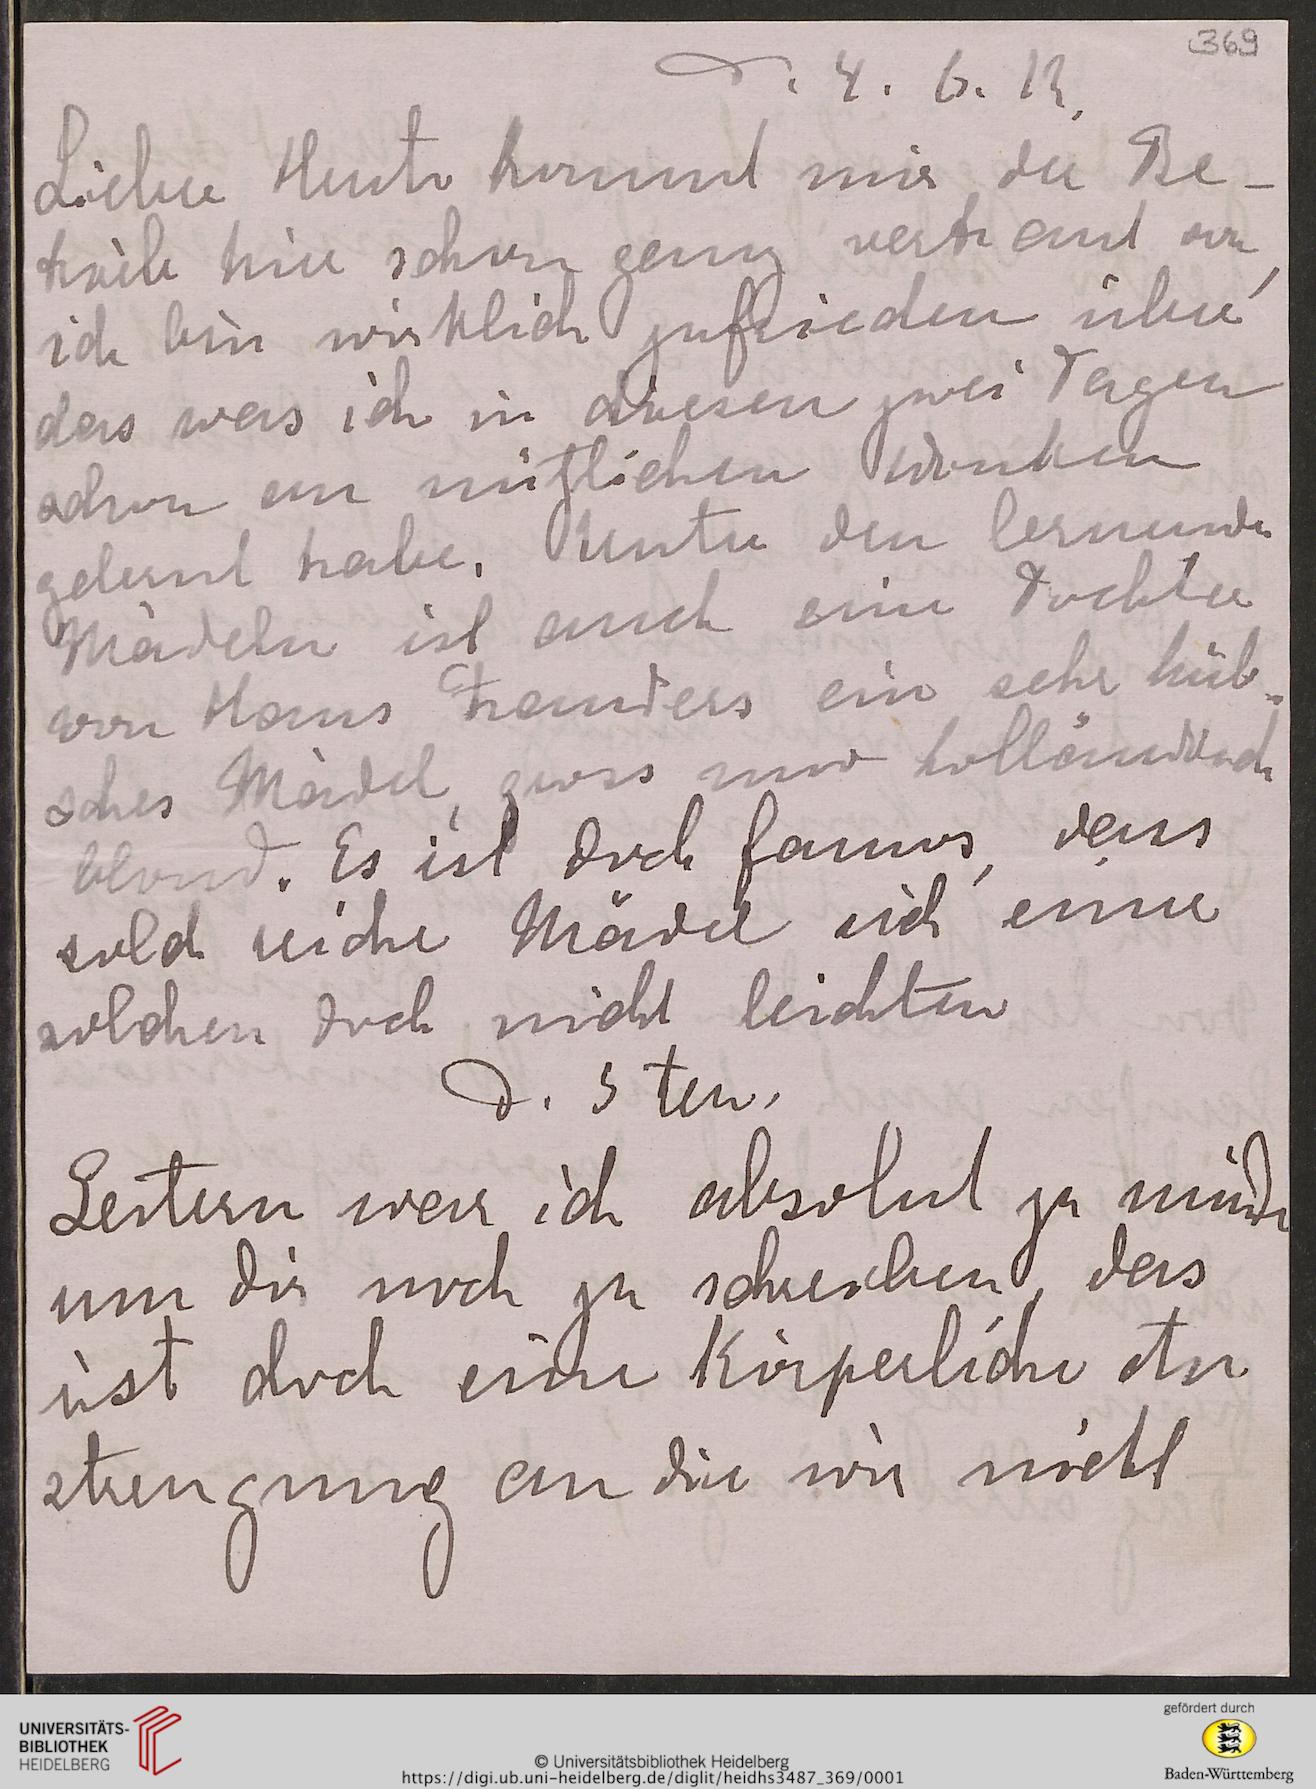 369
D. 4. 6. 12.
Lieber Heute kommt mir der Be-
trieb hier schon ganz vertraut vor,
ich bin wirklich zufrieden über
das was ich in diesen zwei Tagen
schon an nützlichen
gelernt habe. Unter den lernenden
Mädeln ist auch eine Tochter
von Hans ein sehr hüb-
sches Mädel, gross und holländisch
blond. Es ist doch famos, dass
solch reiche Mädel sich eine
solchen doch nicht leichten
D. 5 ten.
Gestern war ich absolut zu müde
um dir noch zu schreiben, das
ist doch eine Körperliche An
strengung an die wir nicht
UNIVERSITÄTS-
BIBLIOTHEK
HEIDELBERG
© Universitätsbibliothek Heidelberg
https://digi.ub.uni-heidelberg.de/diglit/heidhs3487_369/0001
gefördert durch
Baden-Württemberg